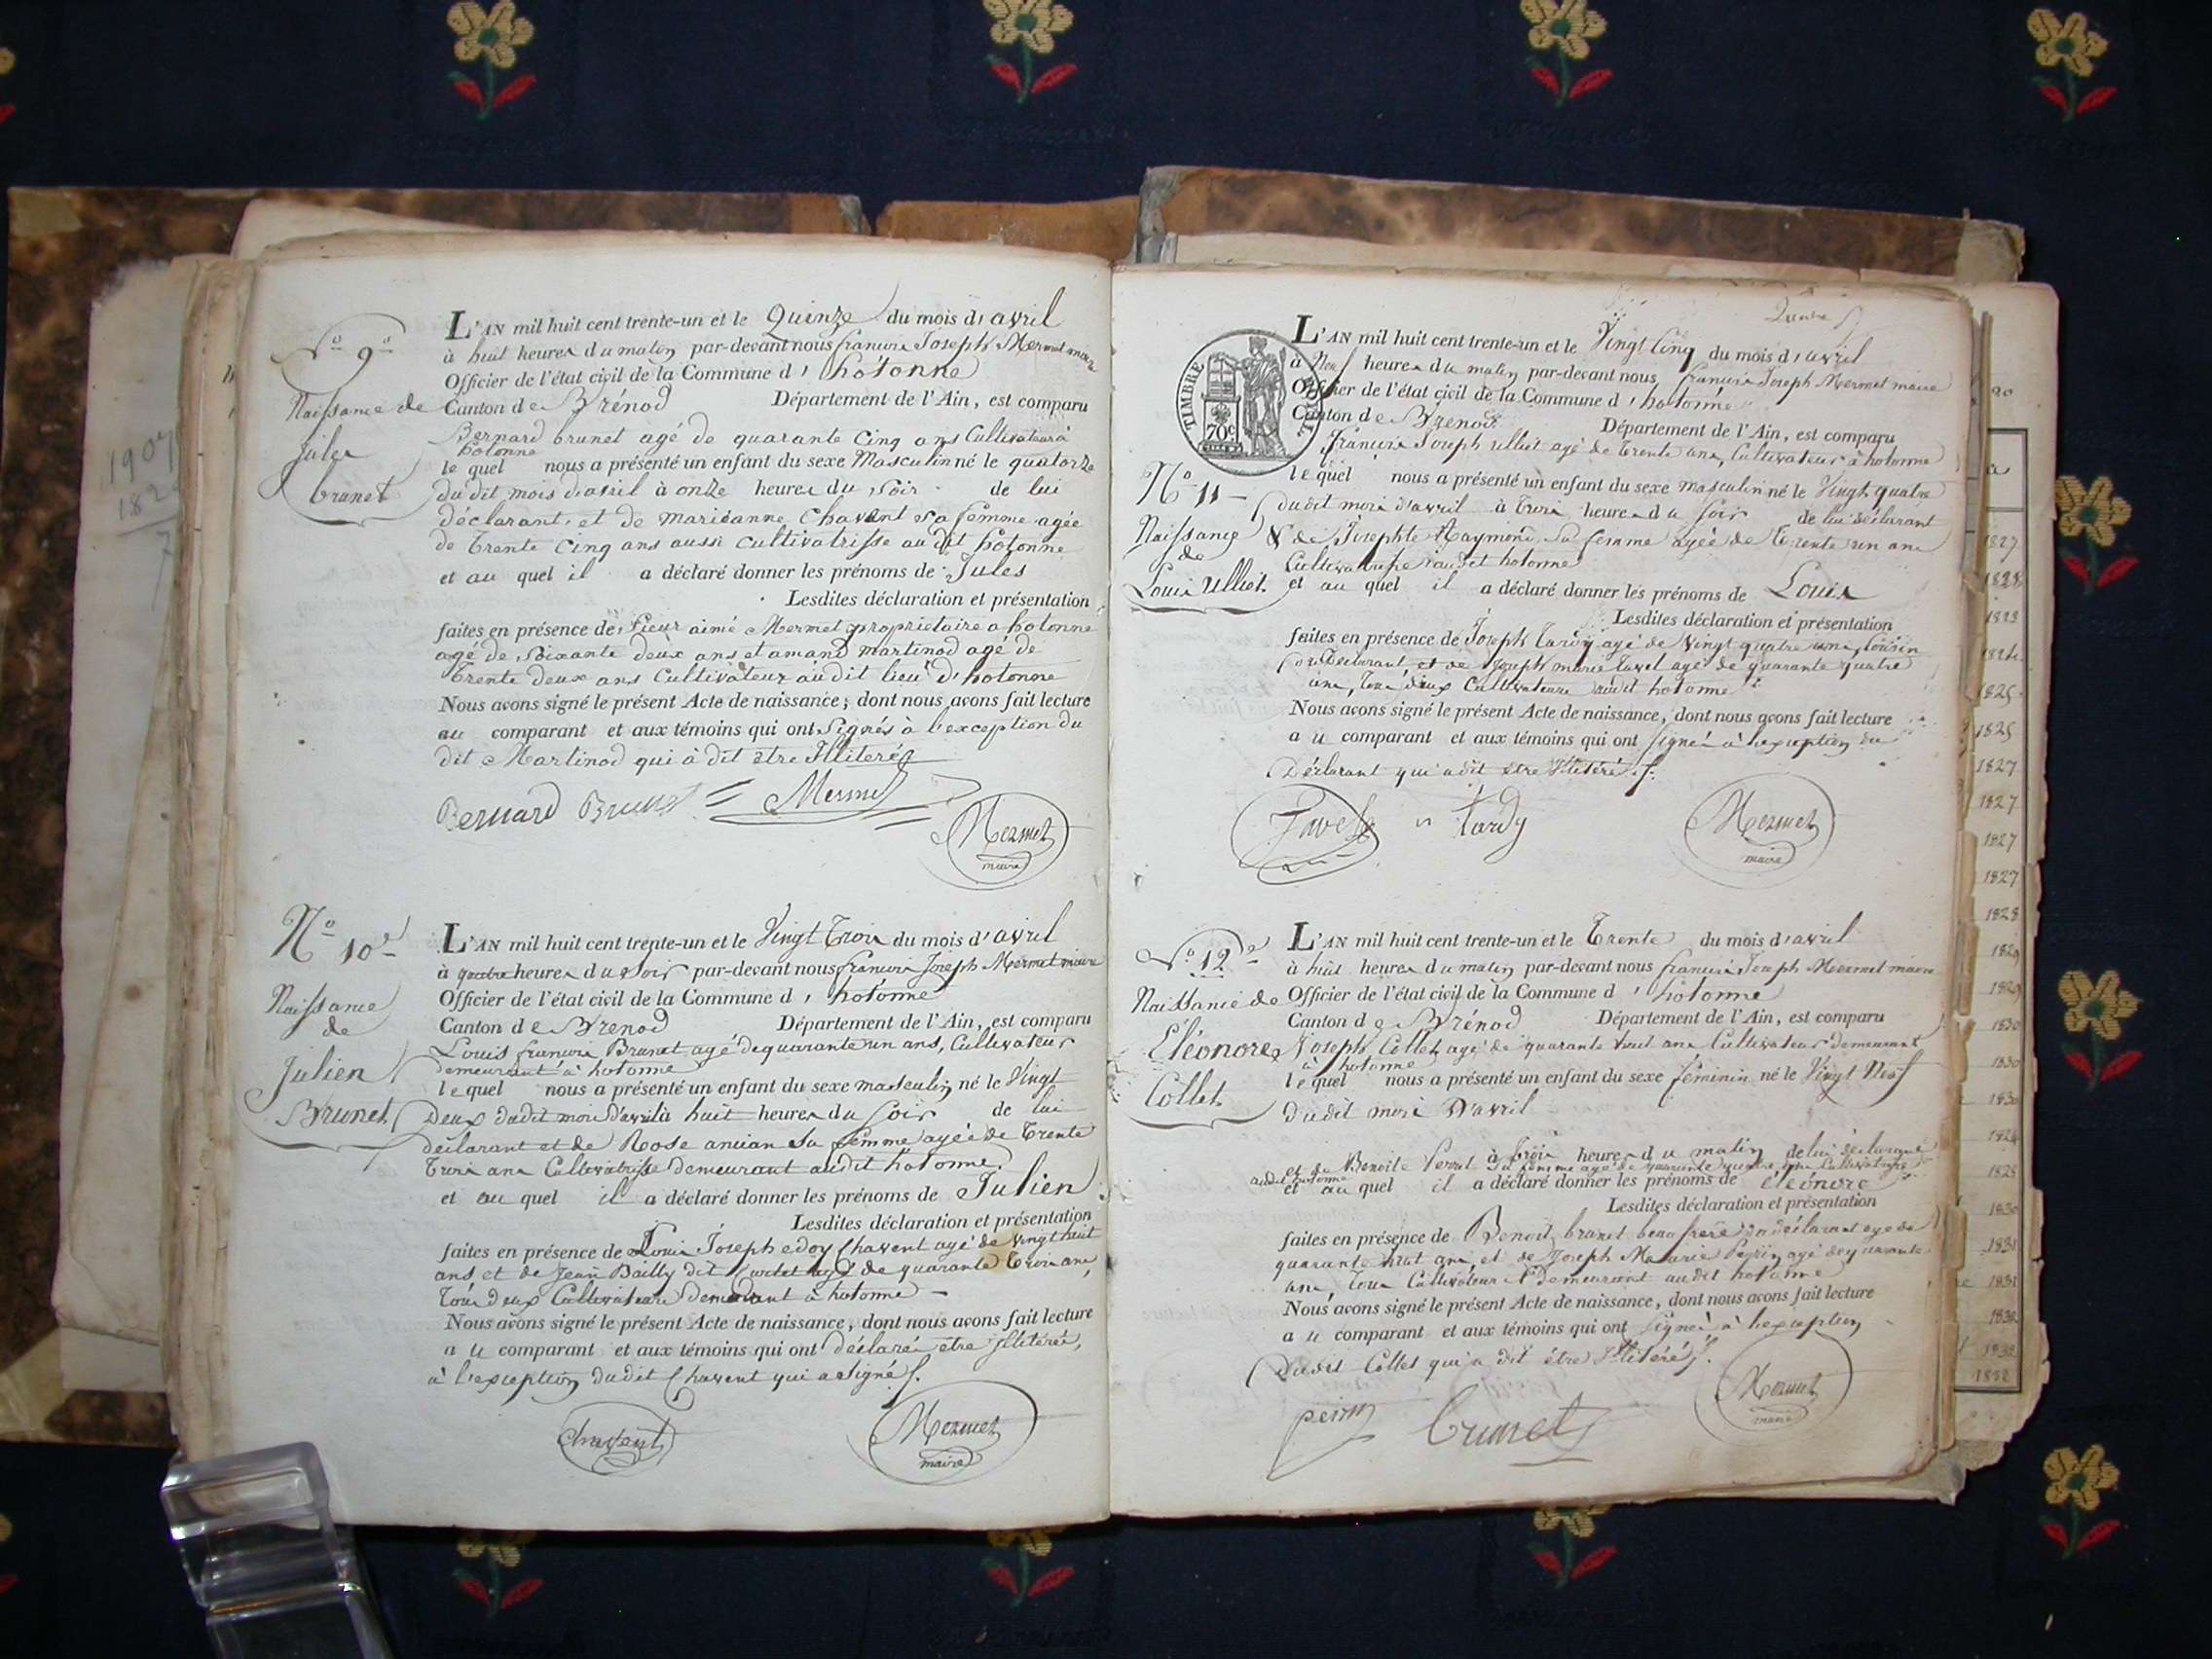 1907
182
7
No 9
Naissance de
Jules
brunet
L'AN mil huit cent trente-un et le Quinze du mois d'avril
à huit heures du matin par-devant nous francois Joseph Mermet maire
Officier de l'état civil de la Commune d'hotonne
Canton de Brénod Département de l'Ain, est comparu
Bernard brunet agé de quarante cinq ans Cultivateur à
hotonne
le quel nous a présenté un enfant du sexe Masculin né le quatorze
du dit mois d'avril à onze heures du Soir de lui
déclarant et de marieanne Chavent sa femme agée
de trente cinq ans aussi cultivatrisse au dit hotonne
et au quel il a déclaré donner les prénoms de Jules
Lesdites déclaration et présentation
faites en présence de Sieur aimé Mermet proprietaire a hotonne
agé de Soixante deux ans et amand martinod agé de
trente deux ans Cultivateur au dit lieu d'hotonne
Nous avons signé le présent Acte de naissance; dont nous avons fait lecture
au comparant et aux témoins qui ont Signés à l'exception du
dit Martinod qui à dit etre Illiteré
Bernard Brunet Mermet
Mermet
maire
No 10
Naissance
de
Julien
Brunet
L'AN mil huit cent trente-un et le Vingt trois du mois d'avril
à quatre heures du soir par-devant nous francois Joseph Mermet maire
Officier de l'état civil de la Commune d'hotonne
Canton de Brenod Département de l'Ain, est comparu
Louis francois Brunet agé de quarante un ans, Cultivateur
demeurant à hotonne
le quel nous a présenté un enfant du sexe masculin né le Vingt
Deux dudit mois d'avril à huit heures du soir de lui
déclarant et de Roose ancian sa femme agée de trente
trois ans Cultivatrisse demeurant audit hotonne
et au quel il a déclaré donner les prénoms de Julien
Lesdites déclaration et présentation
faites en présence de Louis Joseph edoy Chavent agé de vingt huit
ans et de Jean Bailly dit agé de quarante trois ans,
tous deux Cultivateurs demeurant à hotonne
Nous avons signé le présent Acte de naissance, dont nous avons fait lecture
au comparant et aux témoins qui ont déclarés etre Illiterés,
à l'exception dudit Chavent qui a signé
Chavent
Mermet
maire
TIMBRE ROYAL
70c
No 11
Naissance
de
Louis Ulliet
L'AN mil huit cent trente-un et le Vingt Cinq du mois d'avril
à Neuf heures du matin par-devant nous francois Joseph Mermet maire
Officier de l'état civil de la Commune d'hotonne
Canton de Brenod Département de l'Ain, est comparu
francois Joseph ulliet agé de trente ans, Cultivateur à hotonne
le quel nous a présenté un enfant du sexe masculin né le Vingt quatre
dudit mois d'avril à trois heures du soir de lui déclarant
& de Josephte Raymond sa femme agée de trente un ans
Cultivatrisse audit hotonne
et au quel il a déclaré donner les prénoms de Louis
Lesdites déclaration et présentation
faites en présence de Joseph tardy agé de vingt quatre ans, Cousin
du Déclarant, et de Joseph marie tavel agé de quarante quatre
ans, tous deux Cultivateurs audit hotonne
Nous avons signé le présent Acte de naissance, dont nous avons fait lecture
au comparant et aux témoins qui ont signés à l'exception du
Déclarant qui a dit etre Illitéré
Tavel tardy
Mermet
maire
No 12
Naissance de
Eléonore
Collet
L'AN mil huit cent trente-un et le trente du mois d'avril
à huit heures du matin par-devant nous francois Joseph Mermet maire
Officier de l'état civil de la Commune d'hotonne
Canton de Brénod Département de l'Ain, est comparu
Joseph Collet agé de quarante huit ans Cultivateur demeurant
à hotonne
le quel nous a présenté un enfant du sexe féminin né le Vingt Neuf
dudit mois D'avril
à trois heures du matin de lui déclarant
et de Benoite sa femme agé de quarante quatre ans Cultivatrisse
audit hotonne
et au quel il a déclaré donner les prénoms de éléonore
Lesdites déclaration et présentation
faites en présence de Benoit brunet beau frere du déclarant agé de
quarante huit ans, et de Joseph Marie Perrin agé de quarante
ans, tous Cultivateurs & demeurant audit hotonne
Nous avons signé le présent Acte de naissance, dont nous avons fait lecture
au comparant et aux témoins qui ont signés à l'exception
Dudit Collet qui a dit être Illitéré
perrin brunet
Mermet
maire
1827
1828
1823
1824
1825
1825
1827
1827
1827
1827
1828
1829
1829
1830
1830
1830
1824
1828
1830
1831
1831
1832
1832
1832